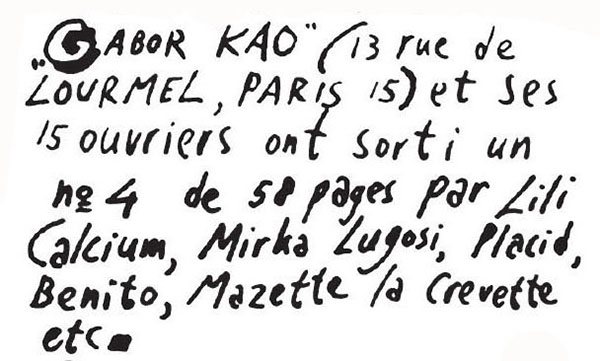 „GABOR KAO" (13 rue de
LOURMEL, PARIS 15) et ses
15 ouvriers ont sorti un
nº 4 de 58 pages par Lili
Calcium, Mirka Lugosi, Placid,
Benito, Mazette la Crevette
etc.